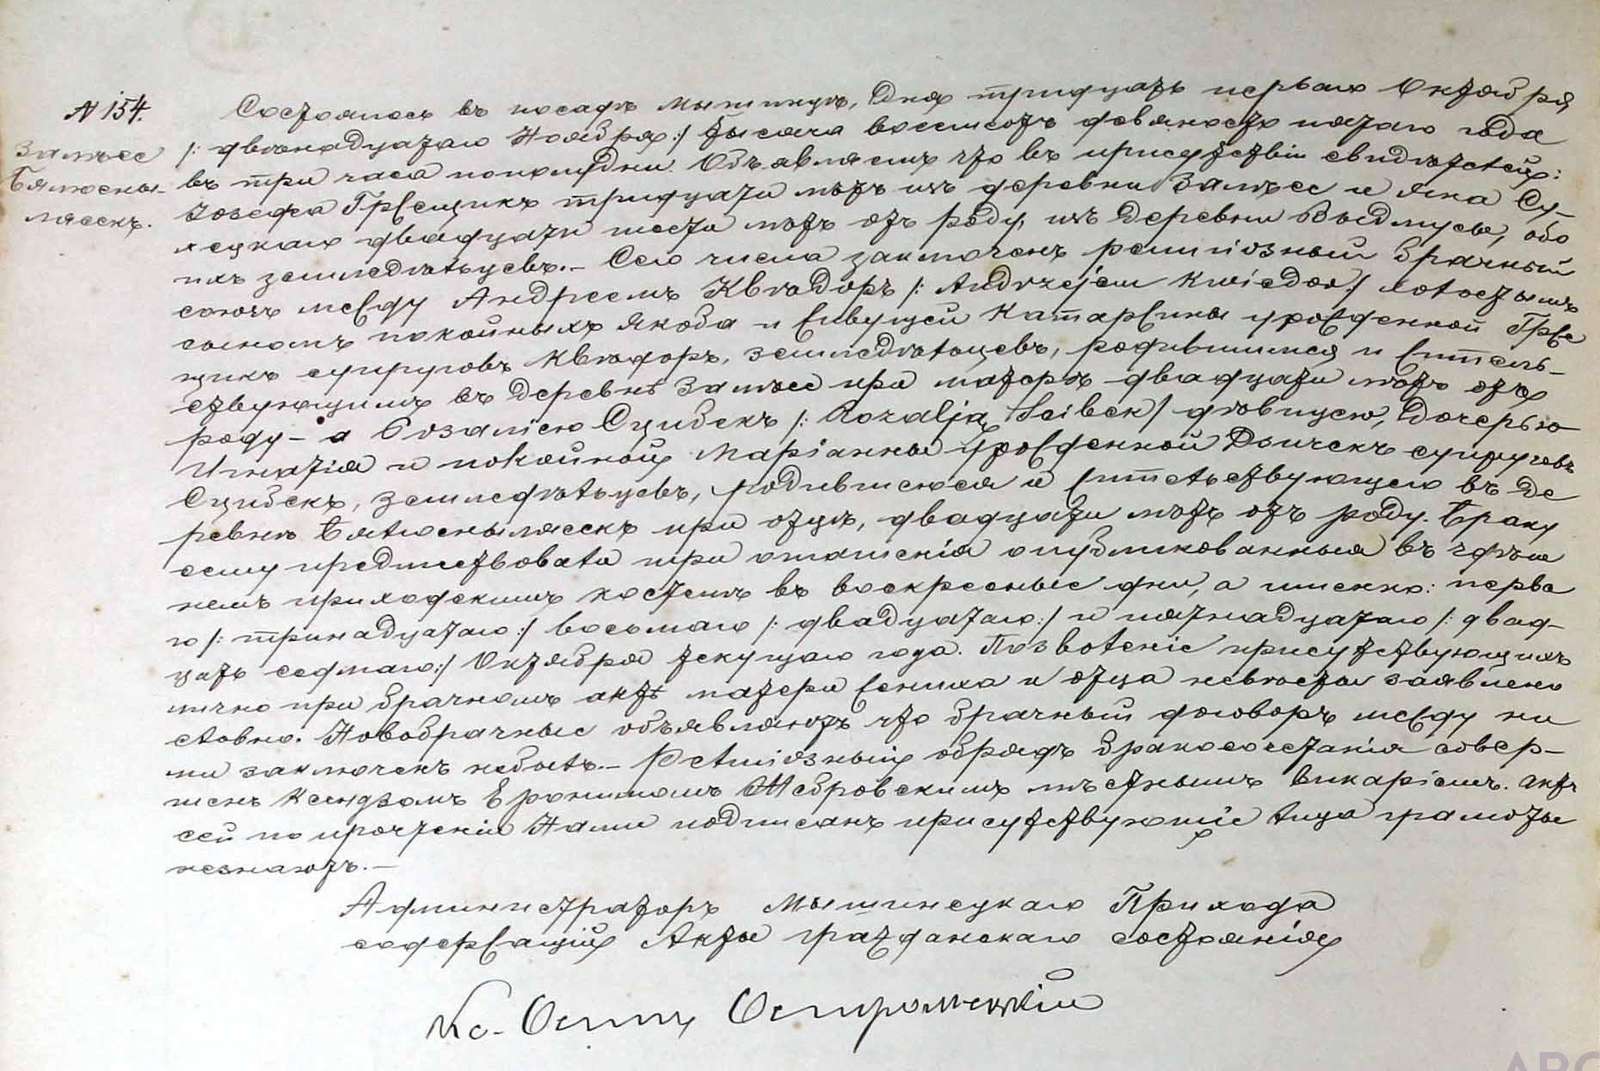 № 154.
Залѣсе
Бялюсны-
лясекъ.
Состоялось въ посадѣ Мышинцѣ, Дня тридцать перваго Октября
/: двѣнадцатаго Ноября:/ тысяча восемсотъ девяносто пятаго года
въ три часа пополудни. Объявляемъ что въ присутствіи свидѣтелей:
Іозефа Гржещикъ тридцати лѣтъ изъ деревни Залѣсе и Яна Су-
лецкаго двадцати шести лѣтъ отъ роду, изъ деревни Выдмусы, обо
ихъ земледѣльцевъ.- Сего числа заключенъ религіозный брачный
союзъ между Андреемъ Квѣдоръ /: Andrzejem Kwiedor:/ холостымъ
сыномъ покойныхъ Якоба и живущей Катаржины урожденной Грже
щикъ супруговъ Квѣдоръ, земледѣльцевъ, родившимся и житель-
ствующимъ въ деревнѣ Залѣсе при матери двадцати лѣтъ отъ
роду - а Розаліею Сцибекъ /: Rozalją Scibek/ дѣвицею, дочерью
Игнатія и покойной Маріанны урожденной Дычекъ супруговъ
Сцибекъ, земледѣльцевъ, родившеюся и жительствующею въ де
ревнѣ Бялюснылясекъ при отцѣ, двадцати лѣтъ отъ роду. Браку
сему предшествовали три оглашенія опубликованныя въ здѣш
немъ приходскимъ костелѣ въ воскресные дни, а именно: перва
го /: тринадцатаго:/ восьмаго /: двадцатаго:/ и пятнадцатаго /: двад-
цать седмаго:/ Октября текущаго года. Позволеніе присутствующихъ
лично при брачномъ актѣ матери жениха и отца невѣсты заявлено
словно. Новобрачные объявляютъ что брачный договоръ между ни
ми заключенъ небылъ.- Религіозный обрядъ бракосочетанія совер-
шенъ Ксендзомъ Еронимомъ Жебровскимъ мѣстнымъ викаріемъ. Актъ
сей по прочтеніи Нами подписанъ присутствующіе лица грамоты
незнаютъ.-
Администраторъ Мышинецкаго Прихода
содержащій Акты гражданскаго состоянія
Кс. Осипъ